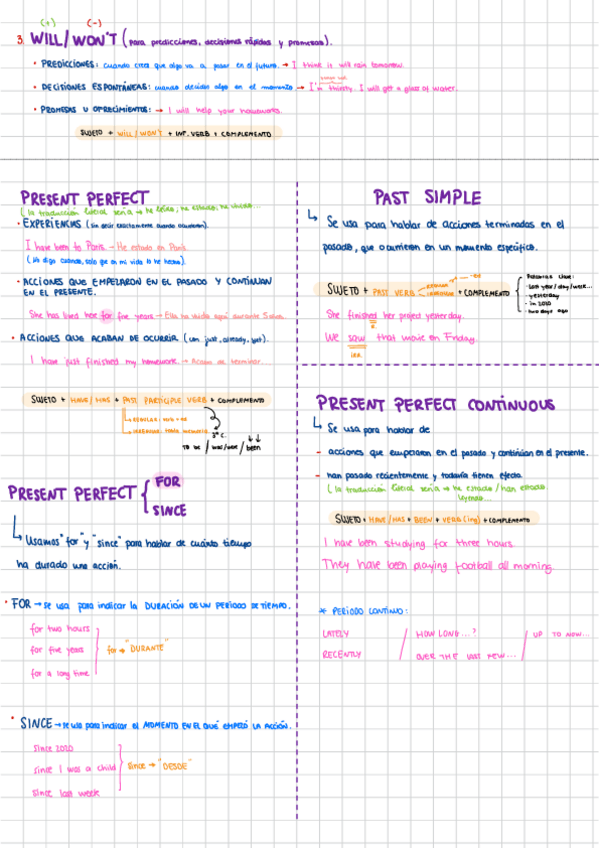 (+) (-)
3. WILL/WON'T (para predicciones, decisiones rápidas y promesas).
• PREDICCIONES: cuando crees que algo va a pasar en el futuro. → I think is will rain tomorrow.
• DECISIONES ESPONTÁNEAS: cuando decides algo en el momento. → I'm thirsty. I will get a glass of water.
• PROMESAS U OFRECIMIENTOS: → I will help your homeworks.
SUJETO + WILL/WON'T + INF. VERB + COMPLEMENTO
PRESENT PERFECT
(la traducción literal sería → he leído, he estado, he vivido...
• EXPERIENCIAS (sin decir exactamente cuando ocurrieron).
I have been to Paris. - He estado en París.
(No digo cuando, solo que en mi vida lo he hecho).
• ACCIONES QUE EMPEZARON EN EL PASADO Y CONTINUAN
EN EL PRESENTE.
She has lived here for five years → Ella ha vivido aquí durante 5 años.
• ACCIONES QUE ACABAN DE OCURRIR (con just, already, yet).
I have just finished my homework. → Acabo de terminar.
SUJETO + HAVE/HAS + PAST PARTICIPLE VERB + COMPLEMENTO
3ª C.
TO BE / WAS/WERE / been
PRESENT PERFECT { FOR
SINCE
Usamos "for" y "since" para hablar de cuánto tiempo
ha durado una acción.
• FOR → se usa para indicar la DURACIÓN DE UN PERIODO DE TIEMPO.
for two hours
for five years
for → "DURANTE"
for a long time
• SINCE → se usa para indicar el MOMENTO EN EL QUE EMPEZÓ LA ACCIÓN.
since 2020
since I was a child
since → "DESDE"
since last week
PAST SIMPLE
Se usa para hablar de acciones terminadas en el
pasado, que ocurrieron en un momento específico.
SUJETO + PAST VERB + COMPLEMENTO
REGULAR → -ED
IRREGULAR
Palabras clave:
- last year/day/week...
- yesterday
- in 2010
- two days ago
She finished her project yesterday.
R
We saw that movie on Friday.
IRR
PRESENT PERFECT CONTINUOUS
Se usa para hablar de
- acciones que empezaron en el pasado y continúan en el presente.
- han pasado recientemente y todavía tienen efecto
(la traducción literal sería → he estado/han estado
leyendo...
SUJETO + HAVE/HAS + BEEN + VERB (ing) + COMPLEMENTO
I have been studying for three hours.
They have been playing football all morning.
* PERIODO CONTINUO:
LATELY / HOW LONG...? / UP TO NOW...
RECENTLY / OVER THE LAST FEW...